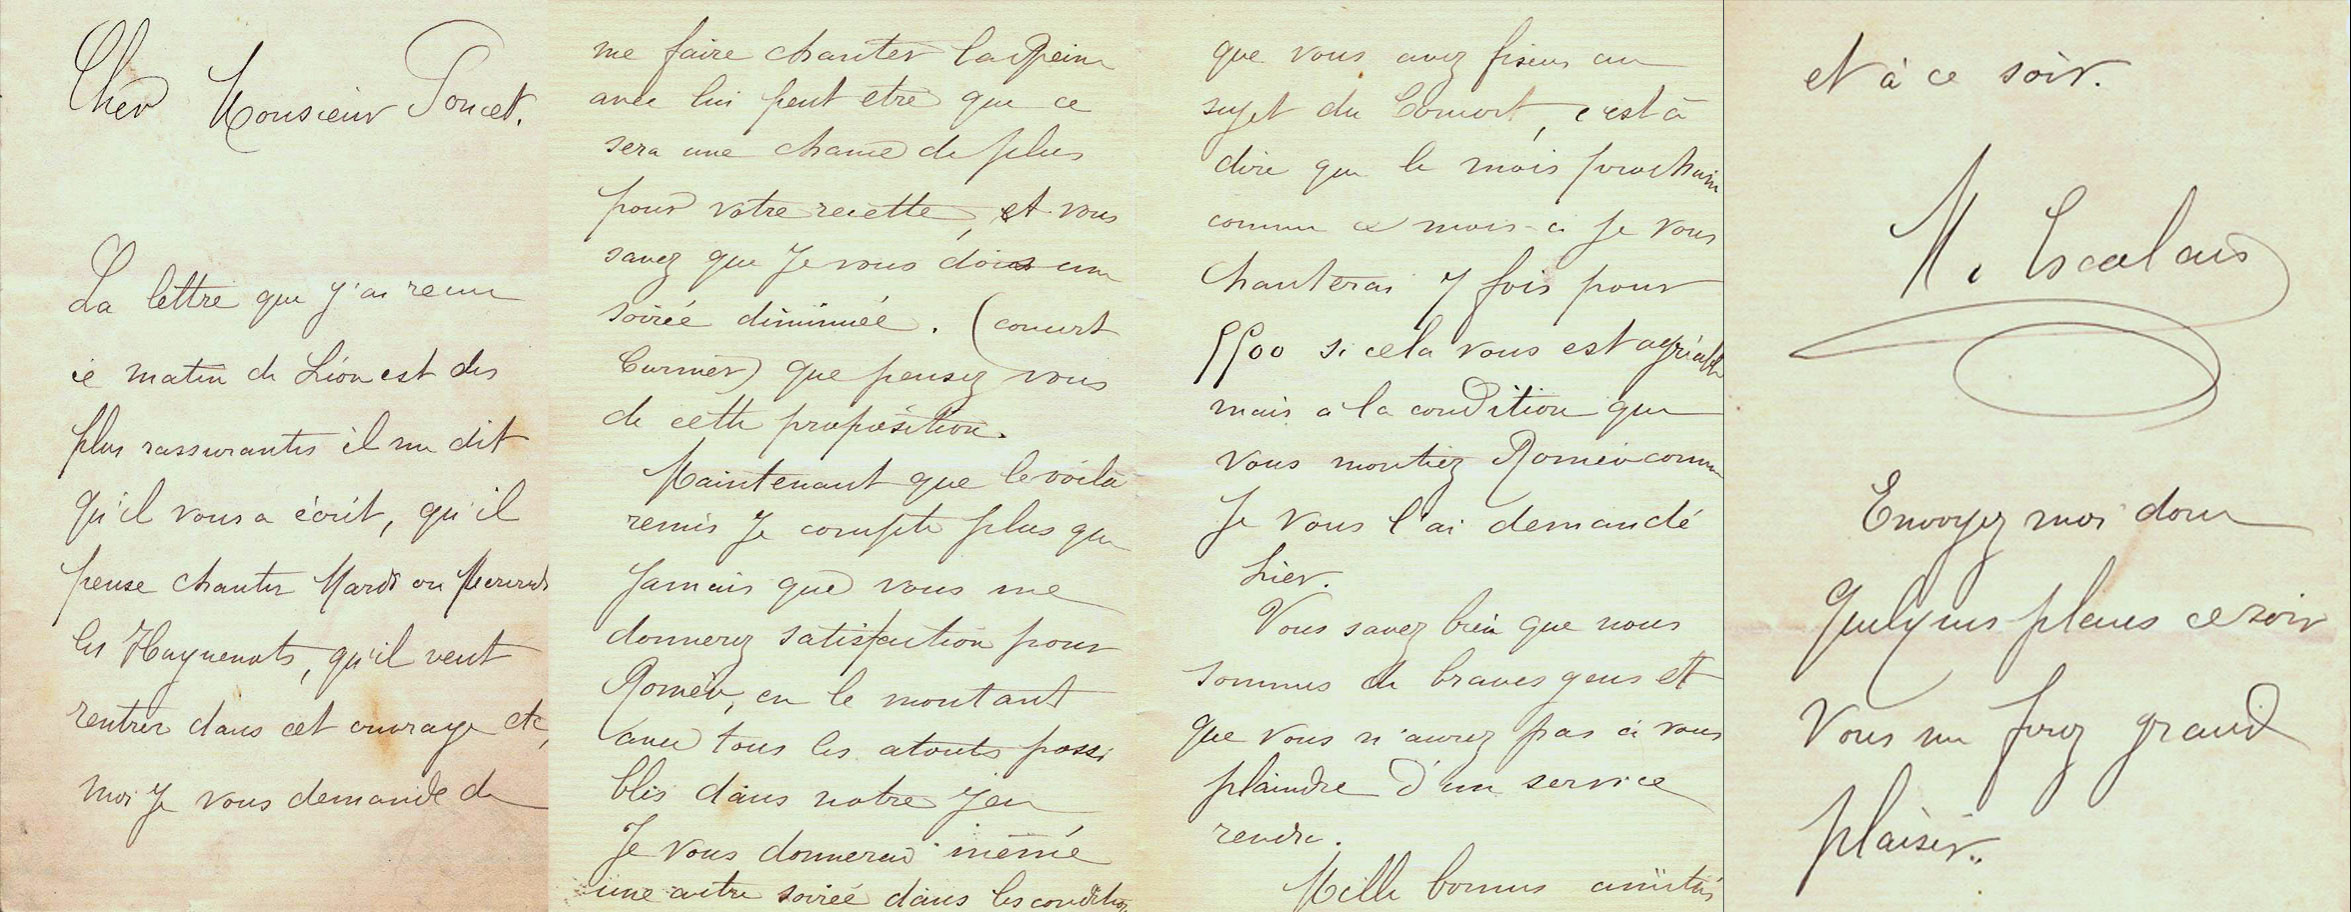 Cher Monsieur Poncet.
La lettre que j'ai reçue
ce matin de Léon est des
plus rassurantes il me dit
qu'il vous a écrit, qu'il
pense chanter Mardi ou Mercredi
les Huguenots, qu'il veut
rentrer dans cet ouvrage etc,
moi Je vous demande de
me faire chanter la Reine
avec lui peut etre que ce
sera une chance de plus
pour votre recette, et vous
savez que Je vous dois une
soirée diminuée. (concert
que pensez vous
de cette proposition.
Maintenant que le voilà
remis Je compte plus que
Jamais que vous me
donnerez satisfaction pour
Roméo, en le montant
avec tous les atouts possi
bles dans notre Jeu
Je vous donnerai même
une autre soirée dans les condition
que vous avez fixées au
sujet du Concert, c'est à
dire que le mois prochain
comme ce mois-ci Je vous
chanterai 7 fois pour
5500 si cela vous est agréable
mais à la condition que
vous montiez Roméo comme
Je vous l'ai demandé
hier.
Vous savez bien que nous
sommes de braves gens et
que vous n'aurez pas à vous
plaindre d'un service
rendu.
Mille bonnes amitiés
et à ce soir.
M. Escalais
Envoyez moi donc
quelques places ce soir
Vous me ferez grand
plaisir.